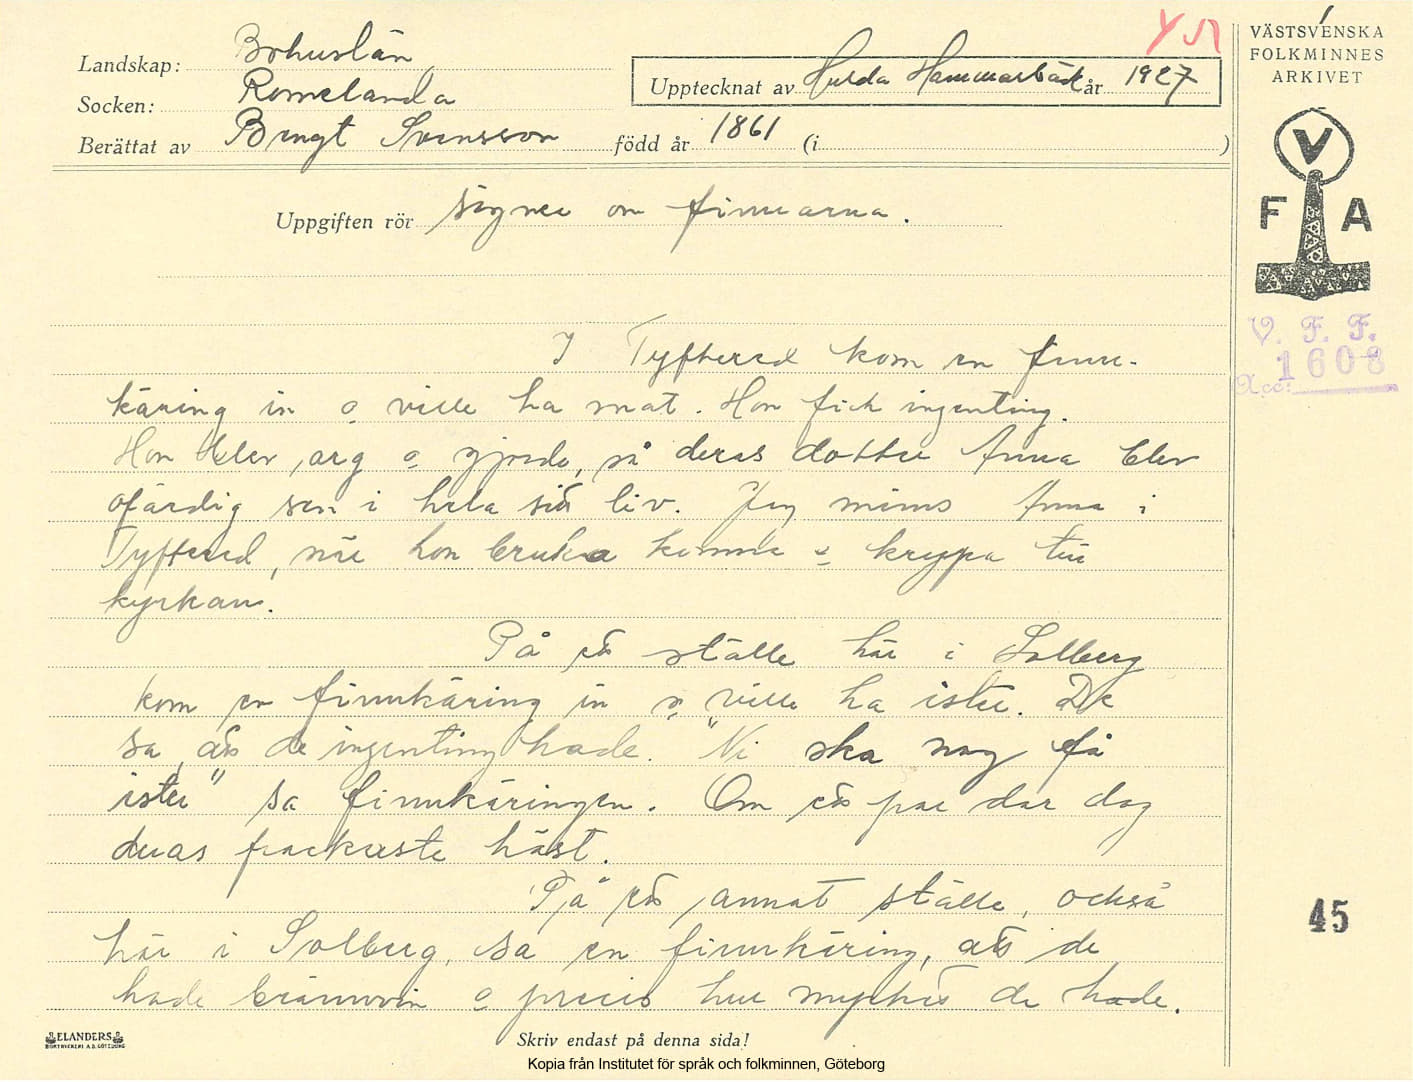 Landskap: Bohuslän
Socken: Romelanda
Upptecknat av Hulda Hammarbäck år 1927
Berättat av Bengt Svensson född år 1861 (i )
VÄSTSVENSKA
FOLKMINNES
ARKIVET
V
F A
V. F. F.
Acc: 1608
Uppgiften rör sägner om finnarna.
I Tyftered kom en finn-
käring in o ville ha mat. Hon fick ingenting.
Hon blev arg o gjorde, så deras dotter Anna blev
ofärdig sen i hela sitt liv. Jag minns Anna i
Tyftered, när hon bruka komma o krypa till
kyrkan.
På ett ställe här i Solberg
kom en finnkäring in o ville ha ister. De
sa, att de ingenting hade. "Ni ska nog få
ister" sa finnkäringen. Om ett par dar dog
deras frackaste häst.
På ett annat ställe, också
här i Solberg, sa en finnkäring, att de
hade brännvin o precis hur mycket de hade.
45
ELANDERS
BOKTRYCKERI A.B. GÖTEBORG
Skriv endast på denna sida!
Kopia från Institutet för språk och folkminnen, Göteborg